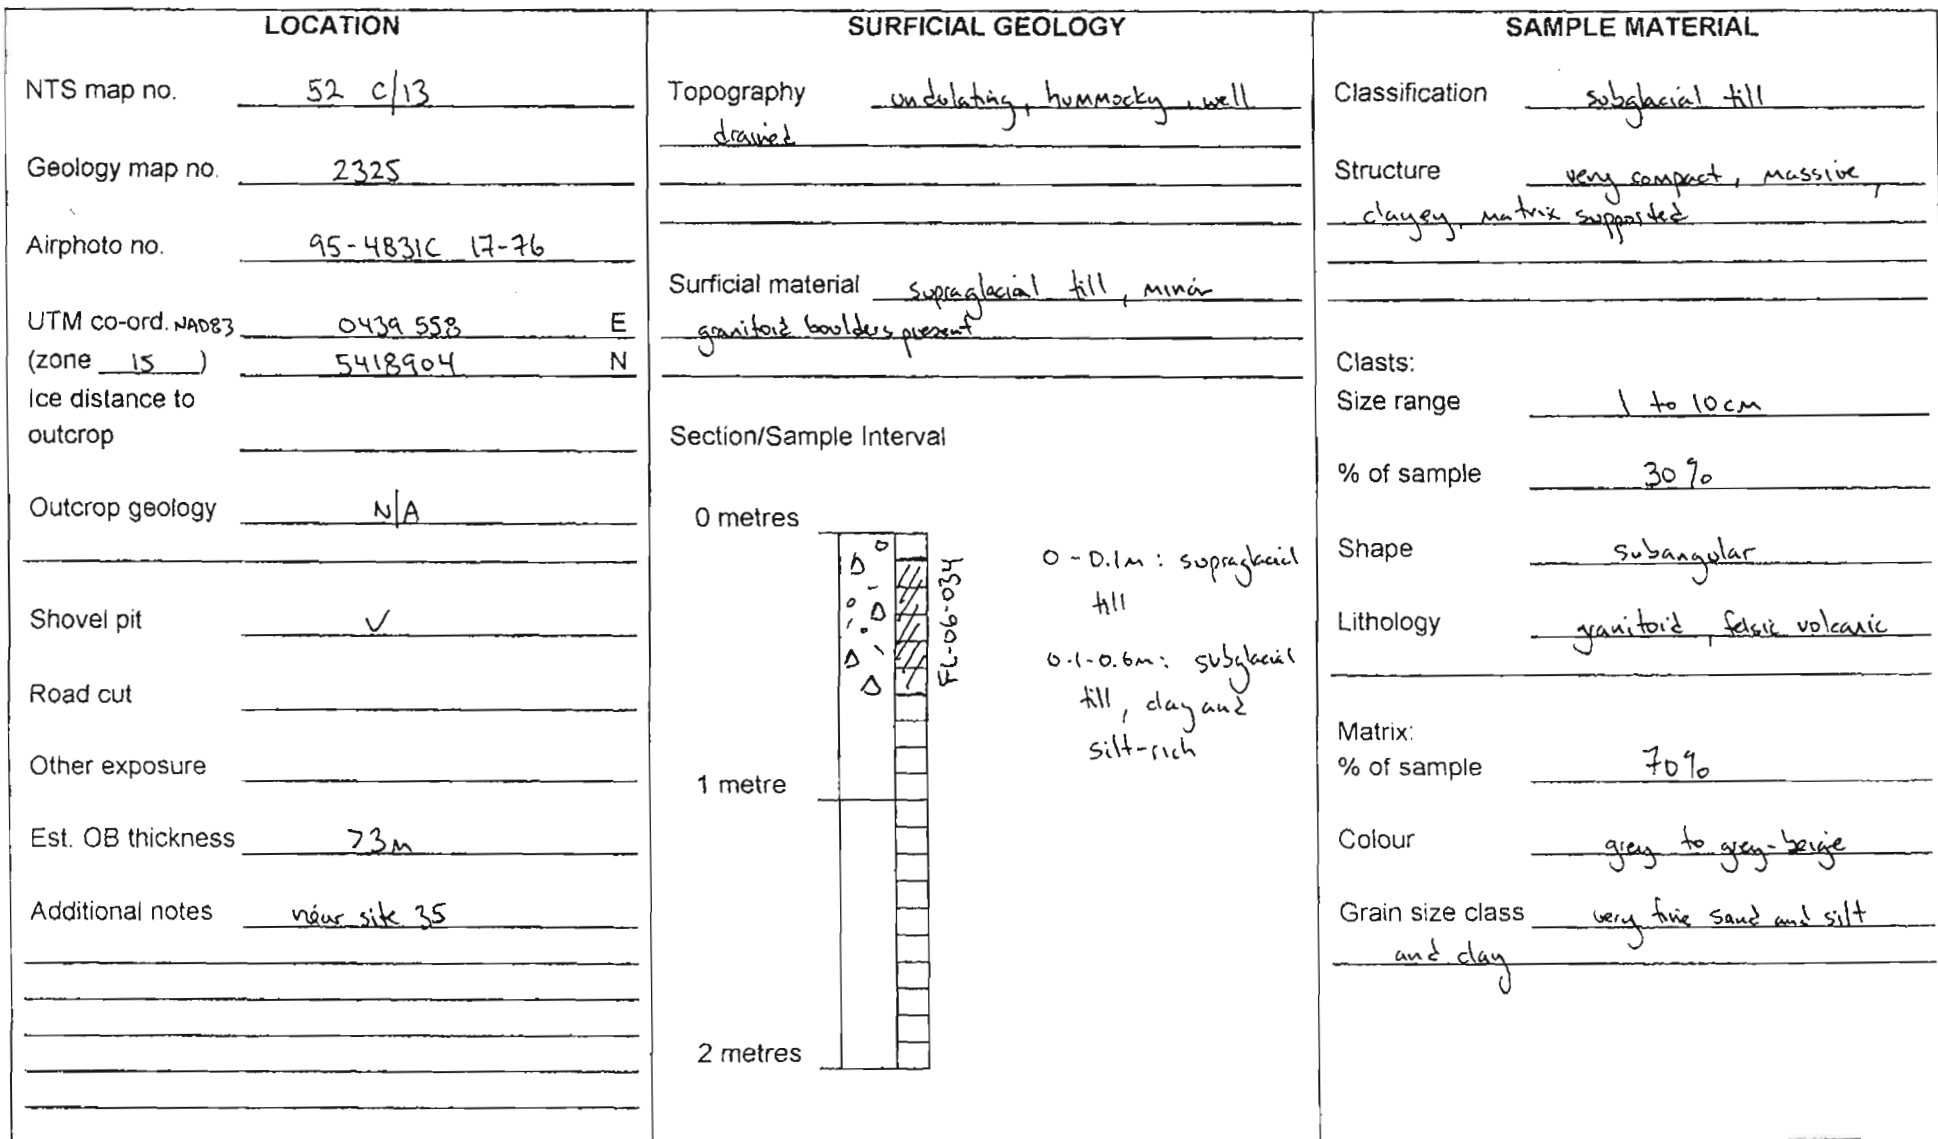 LOCATION
NTS map no. 52 C/13
Geology map no. 2325
Airphoto no. 95-4831C 17-76
UTM co-ord. NAD83 0439 558 E
(zone 15) 5418904 N
Ice distance to
outcrop
Outcrop geology N/A
Shovel pit ✓
Road cut
Other exposure
Est. OB thickness >3m
Additional notes near site 35
SURFICIAL GEOLOGY
Topography undulating, hummocky, well
drained
Surficial material supraglacial till, minor
granitoid boulders present
Section/Sample Interval
0 metres
1 metre
2 metres
FL-06-034
0-0.1m: supraglacial
till
0.1-0.6m: subglacial
till, clay and
silt-rich
SAMPLE MATERIAL
Classification subglacial till
Structure very compact, massive,
clayey, matrix supported
Clasts:
Size range 1 to 10cm
% of sample 30%
Shape subangular
Lithology granitoid, felsic volcanic
Matrix:
% of sample 70%
Colour grey to grey-beige
Grain size class very fine sand and silt
and clay